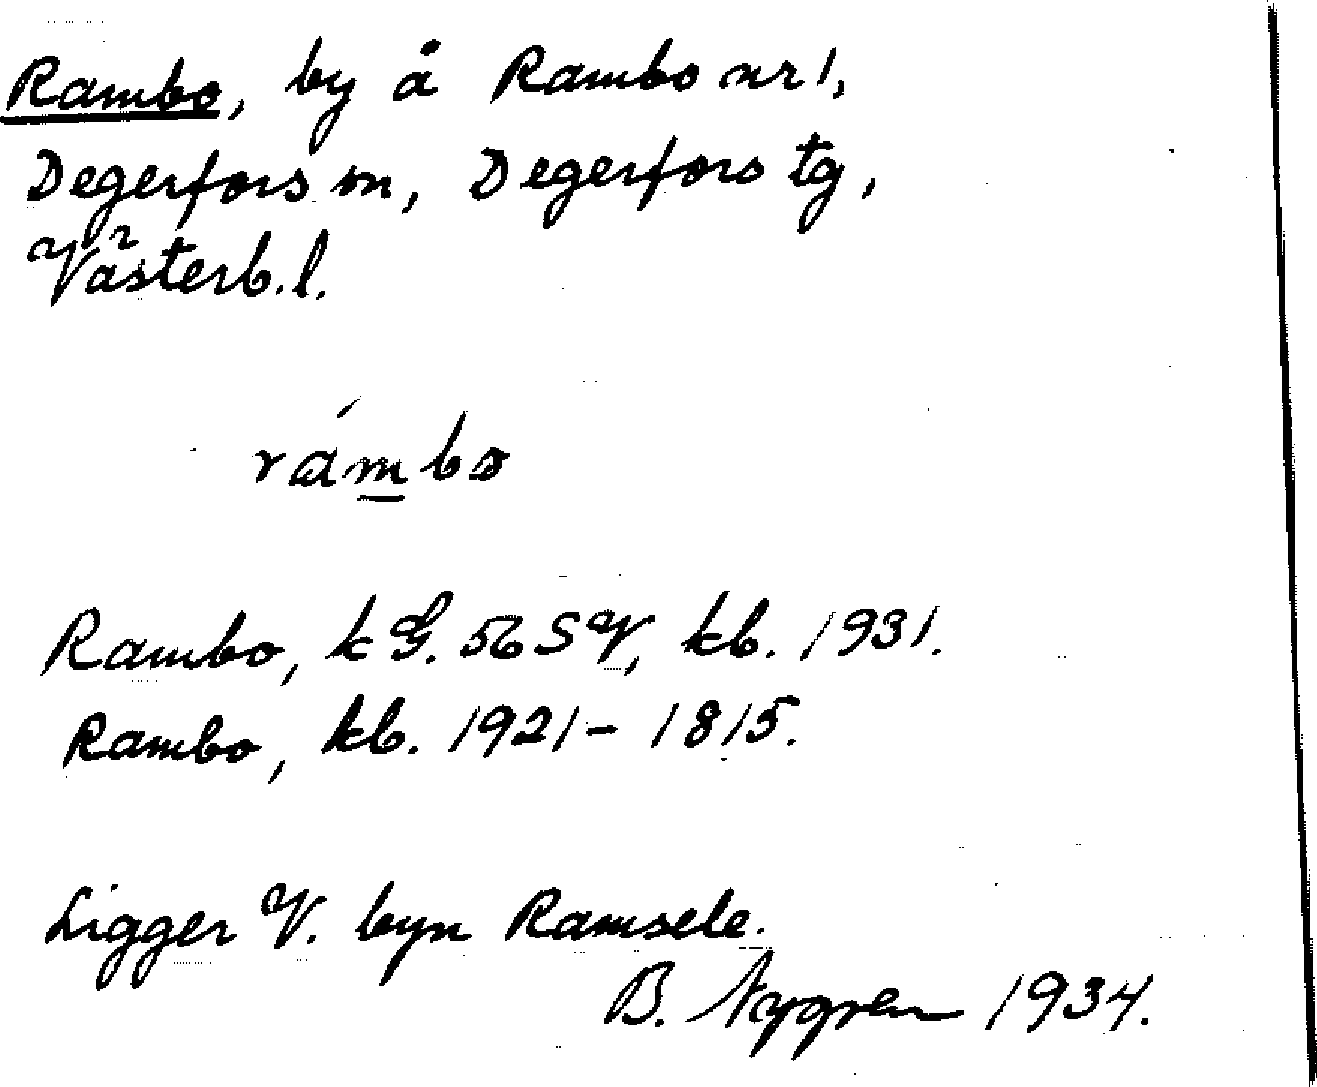 Rambo, by å Rambo nr 1,
Degerfors sn, Degerfors tg,
Västerb. l.
rámbo
Rambo, k G. 56 SV, kb. 1931.
Rambo, kb. 1921 – 1815.
Ligger V. byn Ramsele.
B. Nygren 1934.